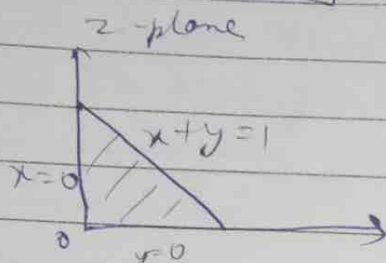 z-plane
x+y=1
x=0
0
y=0